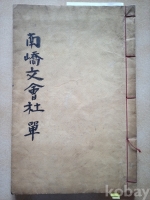 南嶠文會社 單
kobay